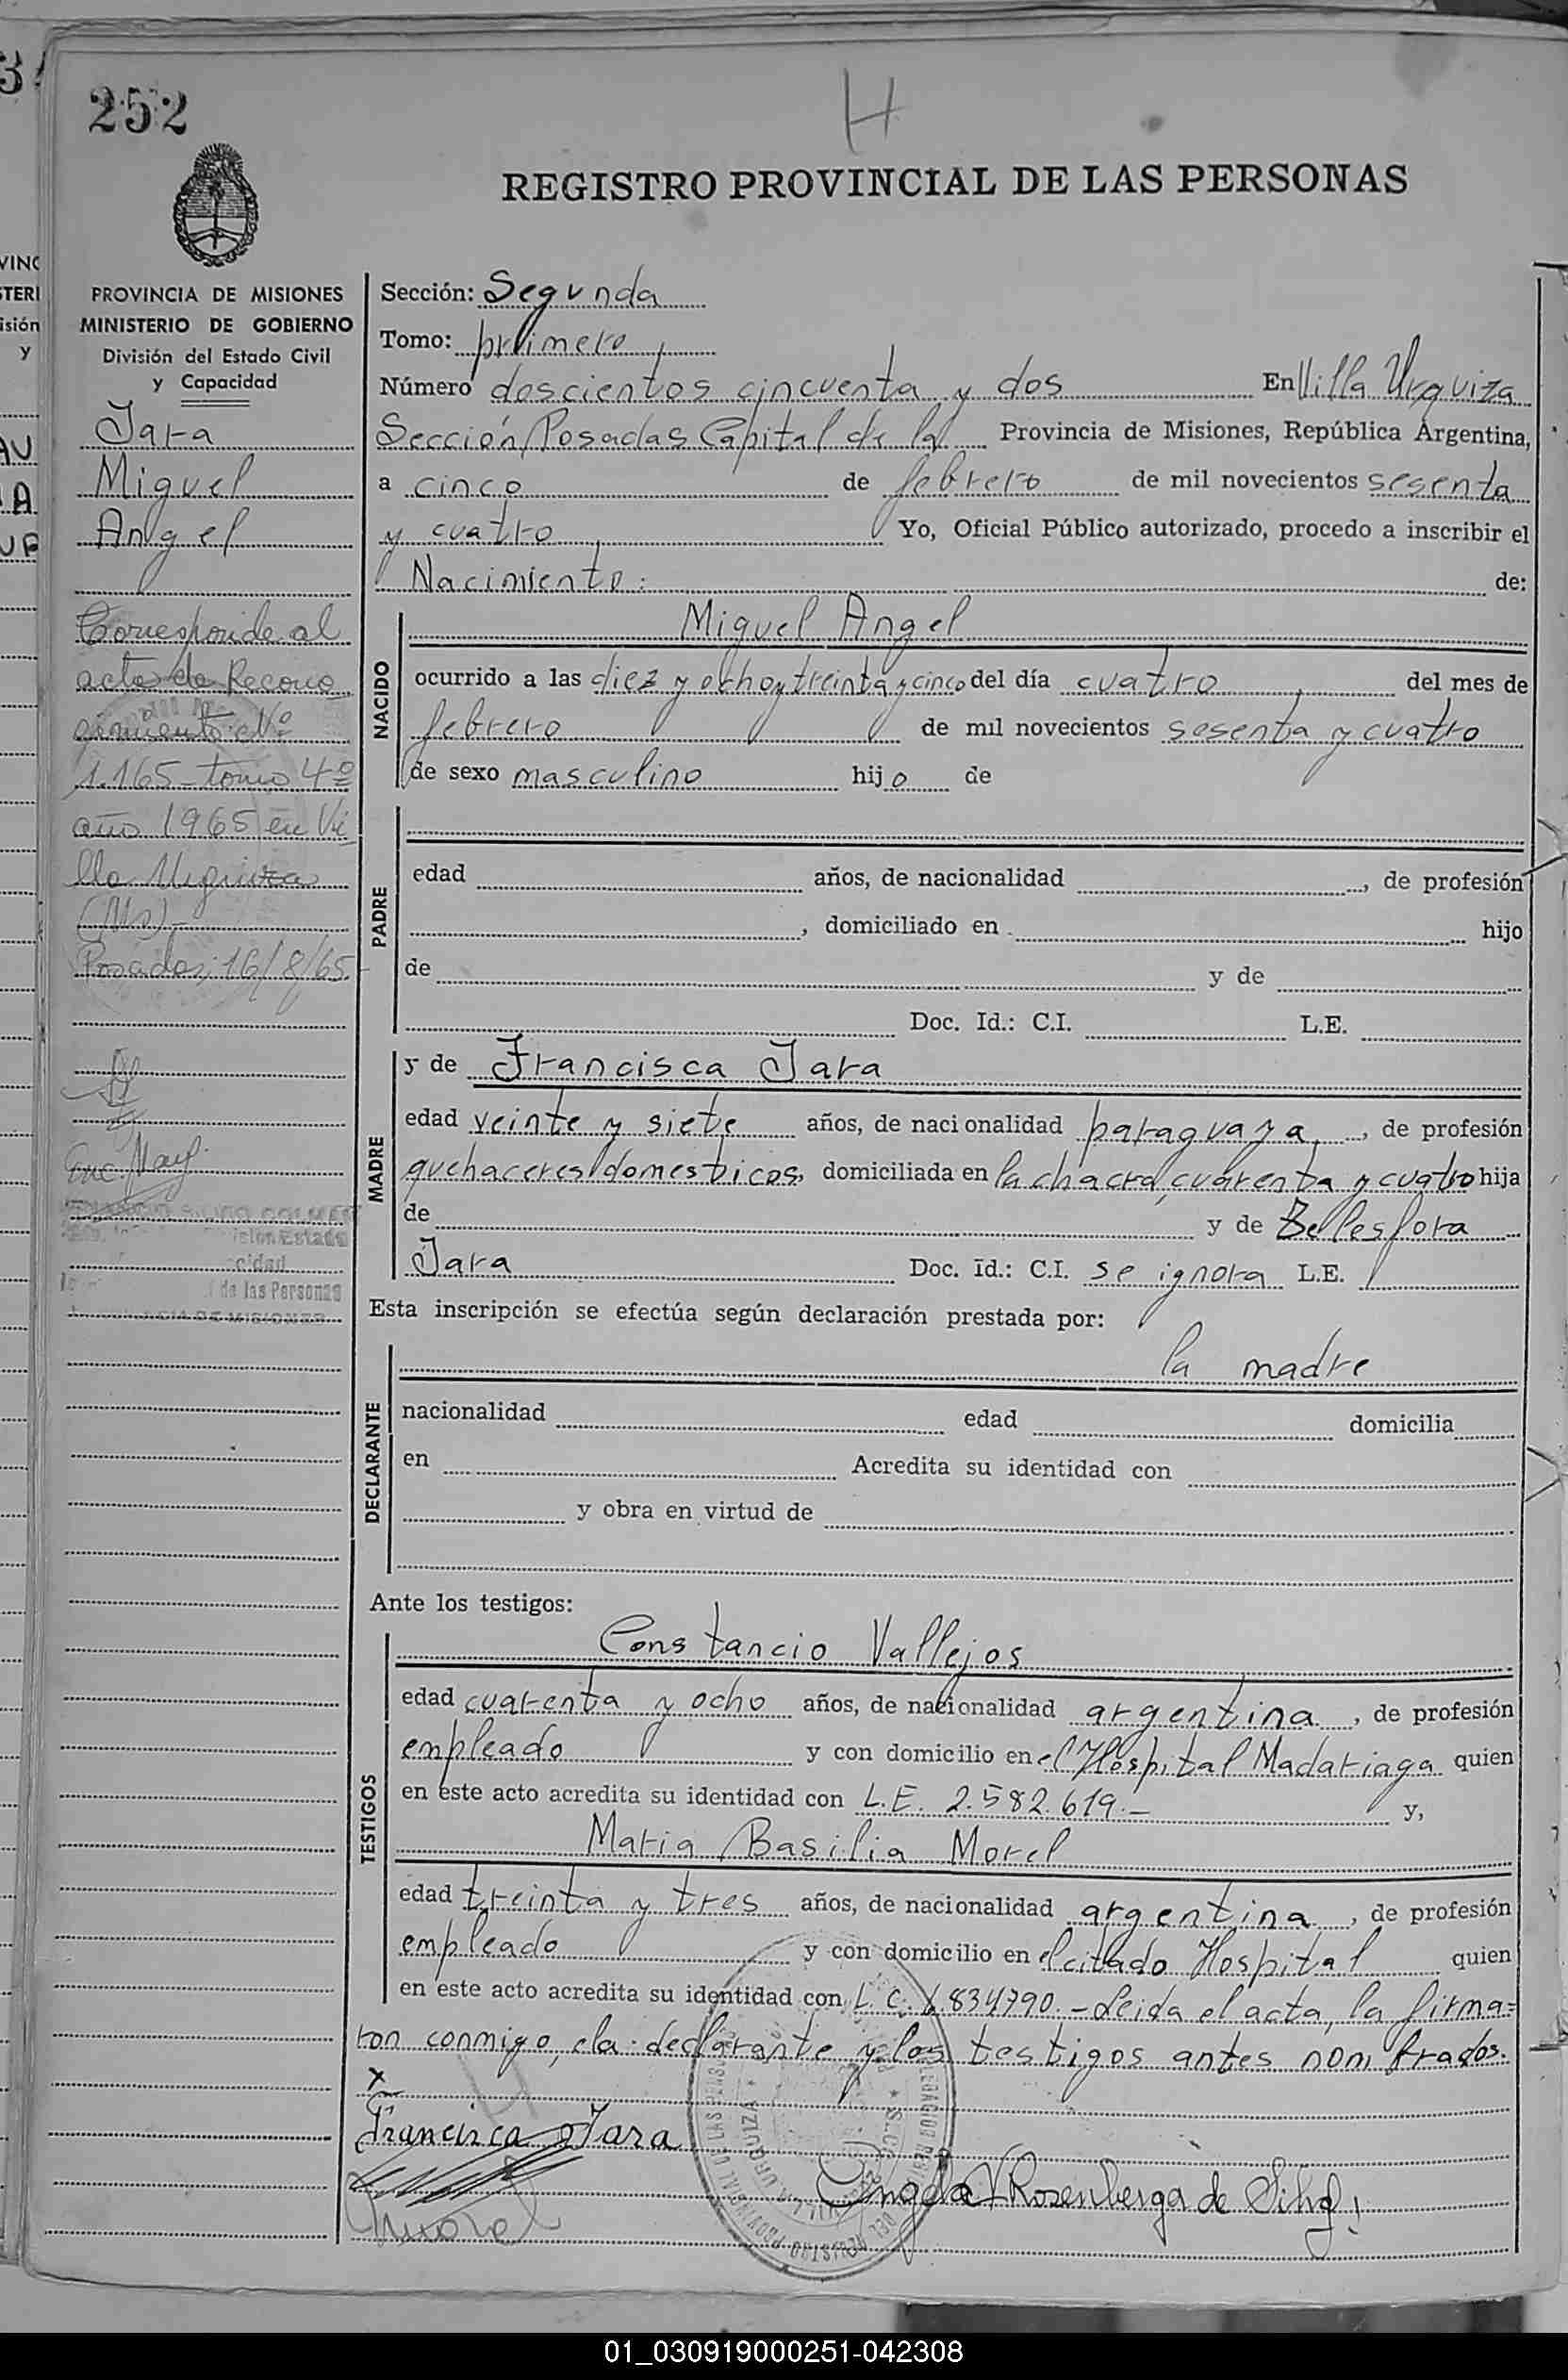 252
H
REGISTRO PROVINCIAL DE LAS PERSONAS
PROVINCIA DE MISIONES
MINISTERIO DE GOBIERNO
División del Estado Civil
y Capacidad
Jara
Miguel
Angel
Corresponde al
acta de Recono
cimiento Nº
1.165 - tomo 4º
año 1965 en Vi
lla Urquiza
(Ms)-
Posadas, 16/8/65.-
de las Personas
Sección: Segunda
Tomo: primero
Número doscientos cincuenta y dos En Villa Urquiza
Sección Posadas Capital de la Provincia de Misiones, República Argentina,
a cinco de febrero de mil novecientos sesenta
y cuatro Yo, Oficial Público autorizado, procedo a inscribir el
Nacimiento: de:
NACIDO
Miguel Angel
ocurrido a las diez y ocho y treinta y cinco del día cuatro del mes de
febrero de mil novecientos sesenta y cuatro
de sexo masculino hijo de
PADRE
edad años, de nacionalidad , de profesión
, domiciliado en hijo
de y de
Doc. Id.: C.I. L.E.
MADRE
y de Francisca Jara
edad veinte y siete años, de nacionalidad paraguaya, de profesión
quehaceres domesticos, domiciliada en la chacra cuarenta y cuatro hija
de y de Bellesfora
Jara Doc. Id.: C.I. se ignora L.E.
Esta inscripción se efectúa según declaración prestada por:
DECLARANTE
la madre
nacionalidad edad domicilia
en Acredita su identidad con
y obra en virtud de
Ante los testigos:
TESTIGOS
Constancio Vallejos
edad cuarenta y ocho años, de nacionalidad argentina, de profesión
empleado y con domicilio en el Hospital Madariaga quien
en este acto acredita su identidad con L.E. 2.582.619.- y,
Maria Basilia Morel
edad treinta y tres años, de nacionalidad argentina, de profesión
empleado y con domicilio en el citado Hospital quien
en este acto acredita su identidad con L.C. 6.834790.- Leida el acta, la firma=
ron conmigo, la declarante y los testigos antes nombrados.
x
Francisca Jara
Angela V Rosenberga de
01_030919000251-042308